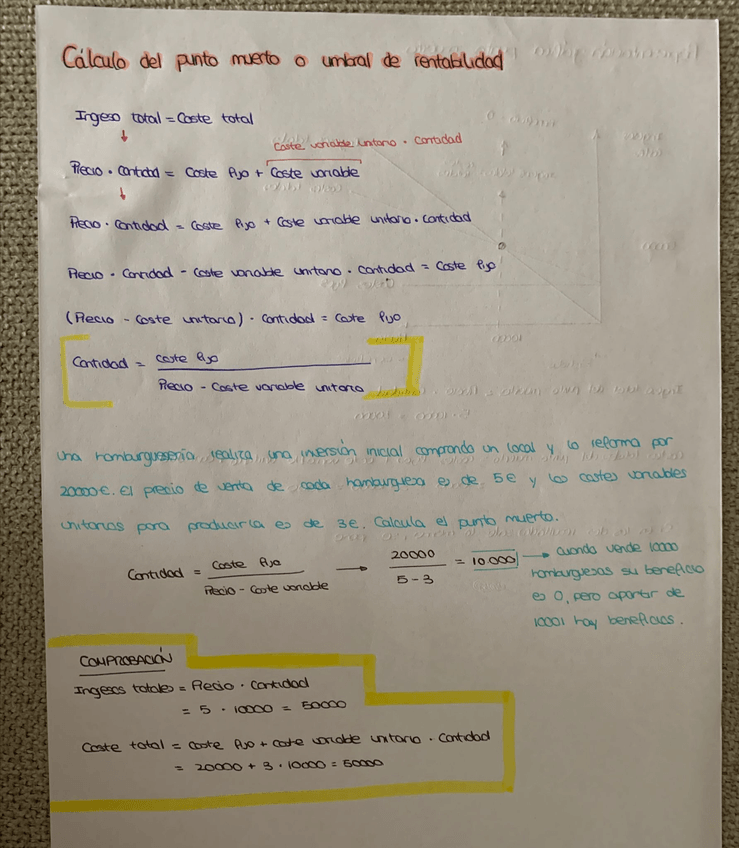 Cálculo del punto muerto o umbral de rentabilidad
Ingeso total = Coste total
↓
Coste variable unitario · Cantidad
Precio · Cantidad = Coste fijo + Coste variable
↓
Precio · Cantidad = Coste fijo + Coste variable unitario · Cantidad
Precio · Cantidad - Coste variable unitario · Cantidad = Coste fijo
(Precio - Coste unitario) · Cantidad = Coste fijo
Cantidad = coste fijo
Precio - Coste variable unitario
Una hamburguesería realiza una inversión inicial comprando un local y lo reforma por
20000€. El precio de venta de cada hamburguesa es de 5€ y los costes variables
unitarios para producirla es de 3€. Calcula el punto muerto.
Cantidad = Coste fijo → 20000 = 10.000 → cuando vende 10000
Precio - Coste variable 5 - 3 hamburguesas su beneficio
es 0, pero apartir de
10001 hay beneficios.
COMPROBACIÓN
Ingresos totales = Precio · Cantidad
= 5 · 10000 = 50000
Coste total = coste fijo + coste variable unitario · Cantidad
= 20000 + 3 · 10000 = 50000